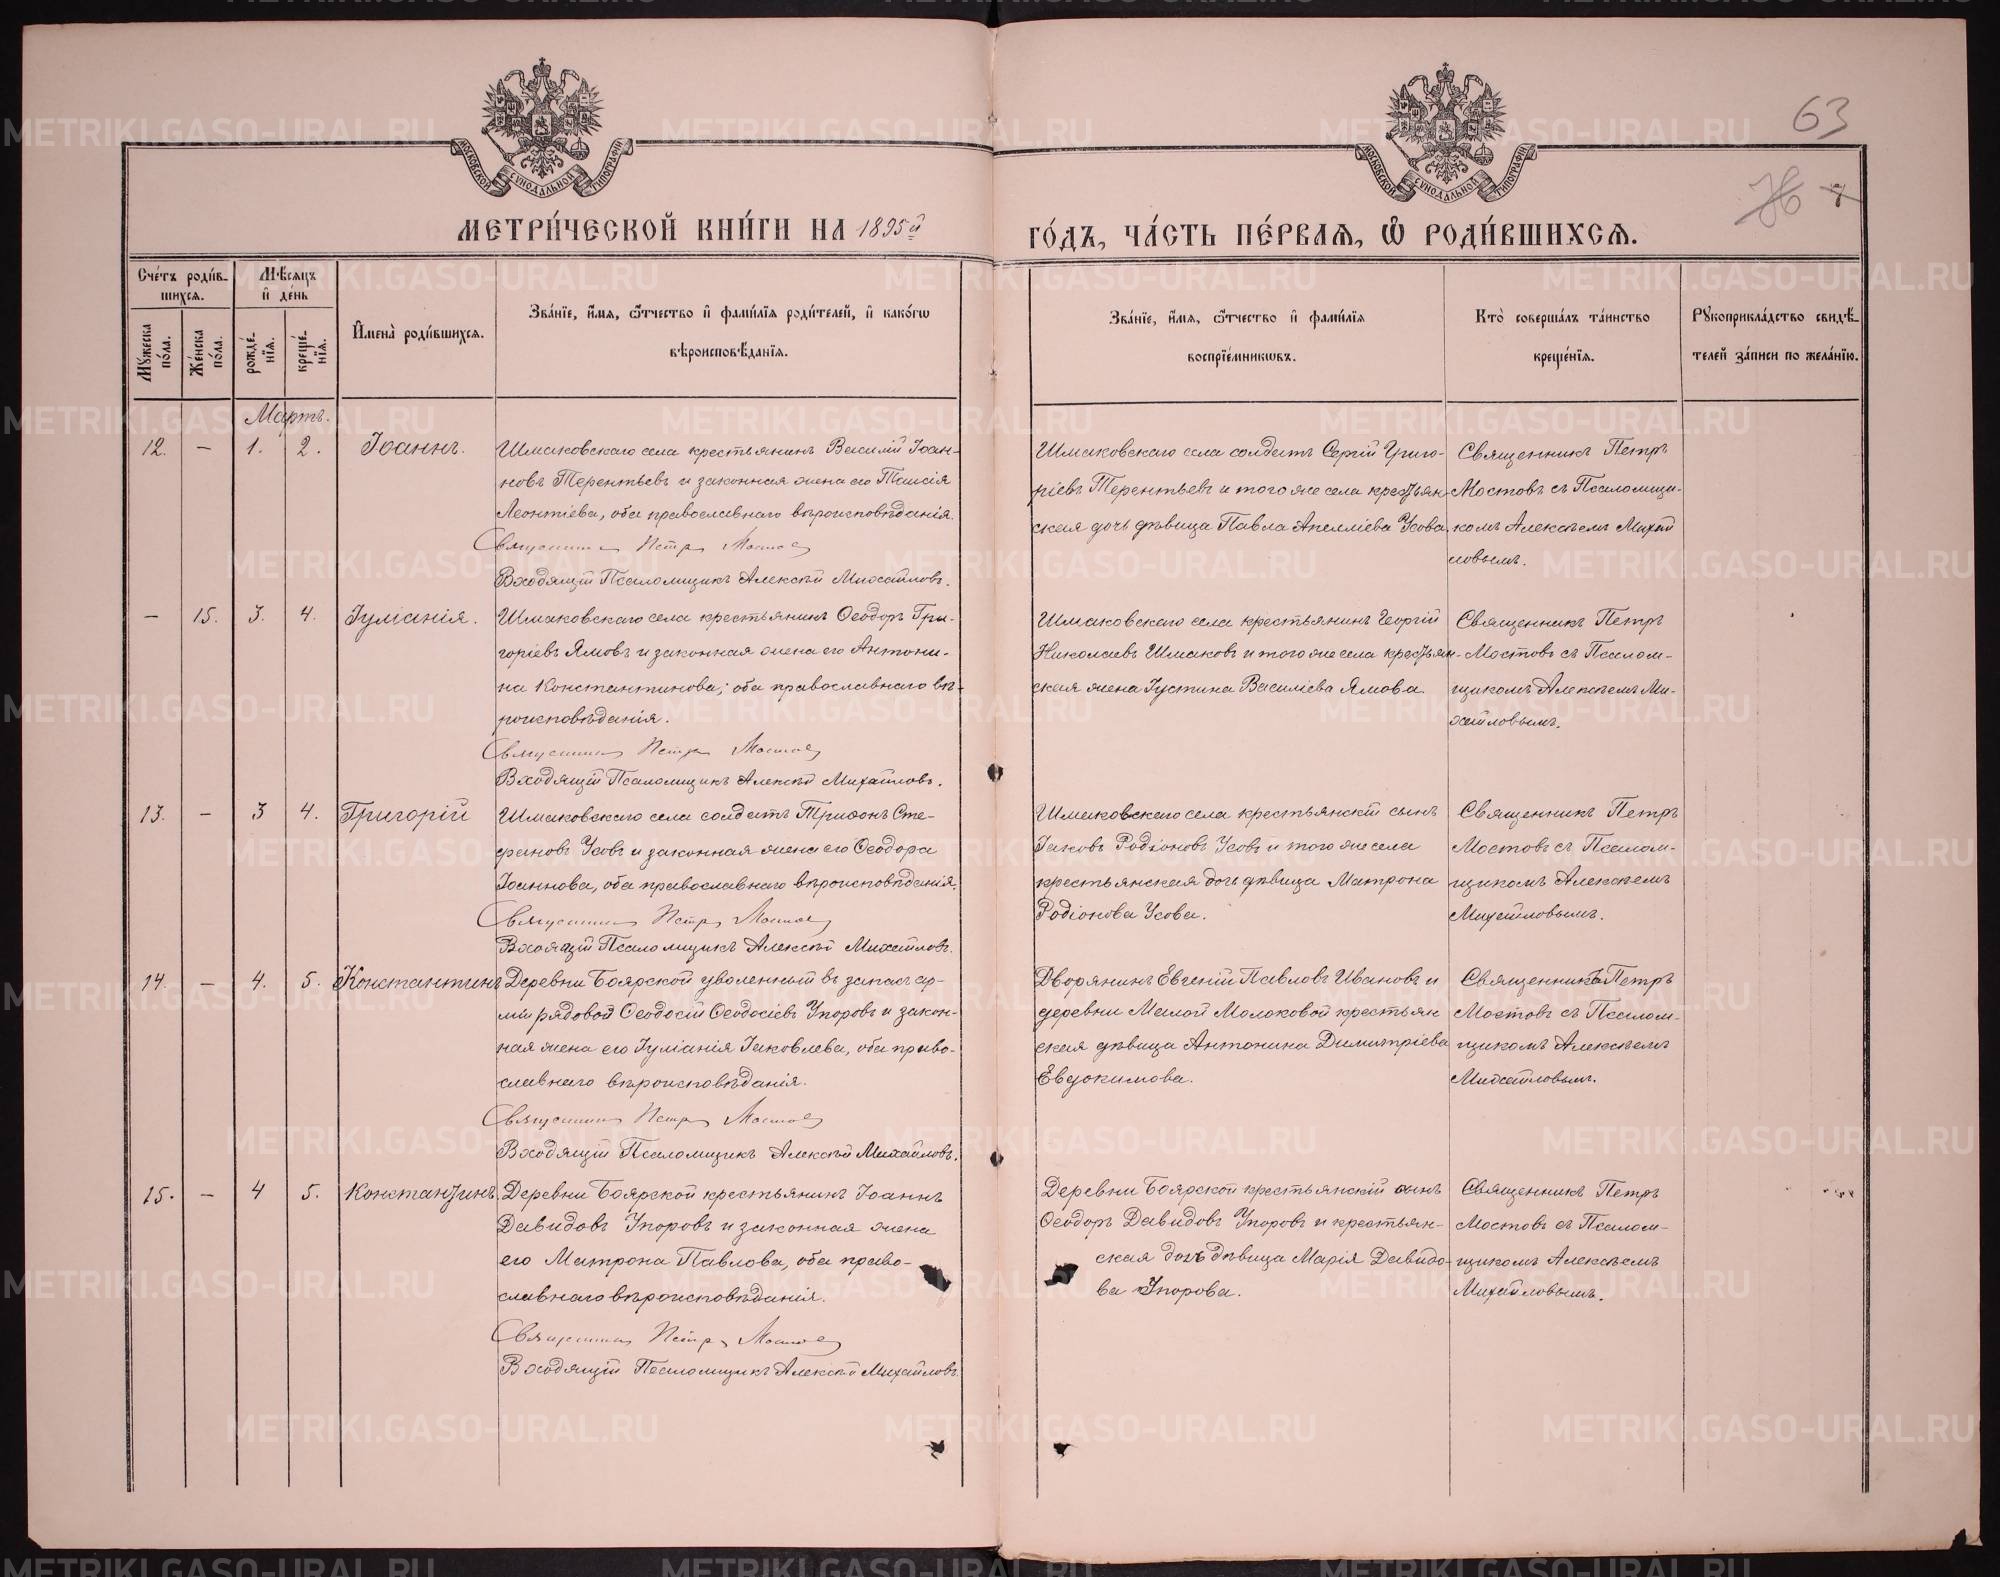 63
МОСКОВСКОЙ СѴНОДАЛЬНОЙ ТИПОГРАФІИ
МОСКОВСКОЙ СѴНОДАЛЬНОЙ ТИПОГРАФІИ
МЕТРИ́ЧЕСКОЙ КНИ́ГИ НА 1895й
ГО́ДЪ, ЧА́СТЬ ПЕ́РВАЯ, Ѡ РОДИ́ВШИХСЯ.
Сче́тъ роди́в-
шихся.
Мѣсяцъ
и де́нь
Мꙋжеска по́ла.
Же́нска по́ла.
рожде́-
нїя.
креще́-
нїя.
Имена̀ роди́вшихся.
Зва́нїе, и́мя, ѻ҆́тчество и фами́лїя роди́телей, и како́гѡ
вѣроисповѣ́данїя.
Зва́нїе, и́мя, ѻ҆́тчество и фами́лїя
воспрїе́мникѡвъ.
Кто̀ соверша́лъ та́инство
креще́нїя.
Рꙋкоприкла́дство свидѣ́-
телей за́писи по жела́нїю.
Мартъ.
12. — 1. 2. Іоаннъ.
Шмаковскаго села крестьянинъ Василій Іоан-
новъ Терентьевъ и законная жена его Таисія
Леонтіева, оба православнаго вѣроисповѣданія.
Священникъ Петръ Мостовъ
Входящій Псаломщикъ Алексѣй Михайловъ.
Шмаковскаго села солдатъ Сергій Григо-
ріевъ Терентьевъ и того же села крестьян-
ская дочь дѣвица Павла Апелліева Усова.
Священникъ Петръ
Мостовъ съ Псаломщи-
комъ Алексѣемъ Михай
ловымъ.
— 15. 3. 4. Іуліанія.
Шмаковскаго села крестьянинъ Ѳеодоръ Гри-
горіевъ Ямовъ и законная жена его Антони-
на Константинова; оба православнаго вѣ-
роисповѣданія.
Священникъ Петръ Мостовъ
Входящій Псаломщикъ Алексѣй Михайловъ.
Шмаковскаго села крестьянинъ Георгій
Николаевъ Шмаковъ и того же села крестьян-
ская жена Іустина Василіева Ямова.
Священникъ Петръ
Мостовъ съ Псалом-
щикомъ Алексѣемъ Ми-
хайловымъ.
13. — 3 4. Григорій
Шмаковскаго села солдатъ Трифонъ Сте-
фановъ Усовъ и законная жена его Ѳеодора
Іоаннова, оба православнаго вѣроисповѣданія.
Священникъ Петръ Мостовъ
Входящій Псаломщикъ Алексѣй Михайловъ.
Шмаковскаго села крестьянскій сынъ
Іаковъ Родіоновъ Усовъ и того же села
крестьянская дочь дѣвица Матрона
Родіонова Усова.
Священникъ Петръ
Мостовъ съ Псалом-
щикомъ Алексѣемъ
Михайловымъ.
14. — 4. 5. Константинъ
Деревни Боярской уволенный въ запасъ ар-
міи рядовой Ѳеодосій Ѳеодосіевъ Упоровъ и закон-
ная жена его Іуліанія Іаковлева, оба право-
славнаго вѣроисповѣданія.
Священникъ Петръ Мостовъ
Входящій Псаломщикъ Алексѣй Михайловъ.
Дворянинъ Евгеній Павловъ Ивановъ и
деревни Малой Молоковой крестьян
ская дѣвица Антонина Димитріева
Евдокимова.
Священникъ Петръ
Мостовъ съ Псалом-
щикомъ Алексѣемъ
Михайловымъ.
15. — 4 5. Константинъ.
Деревни Боярской крестьянинъ Іоаннъ
Давидовъ Упоровъ и законная жена
его Матрона Павлова, оба право-
славнаго вѣроисповѣданія.
Священникъ Петръ Мостовъ
Входящій Псаломщикъ Алексѣй Михайловъ.
Деревни Боярской крестьянскій сынъ
Ѳеодоръ Давидовъ Упоровъ и крестьян-
ская дочь дѣвица Марія Давидо-
ва Упорова.
Священникъ Петръ
Мостовъ съ Псалом-
щикомъ Алексѣемъ
Михайловымъ.
METRIKI.GASO-URAL.RU